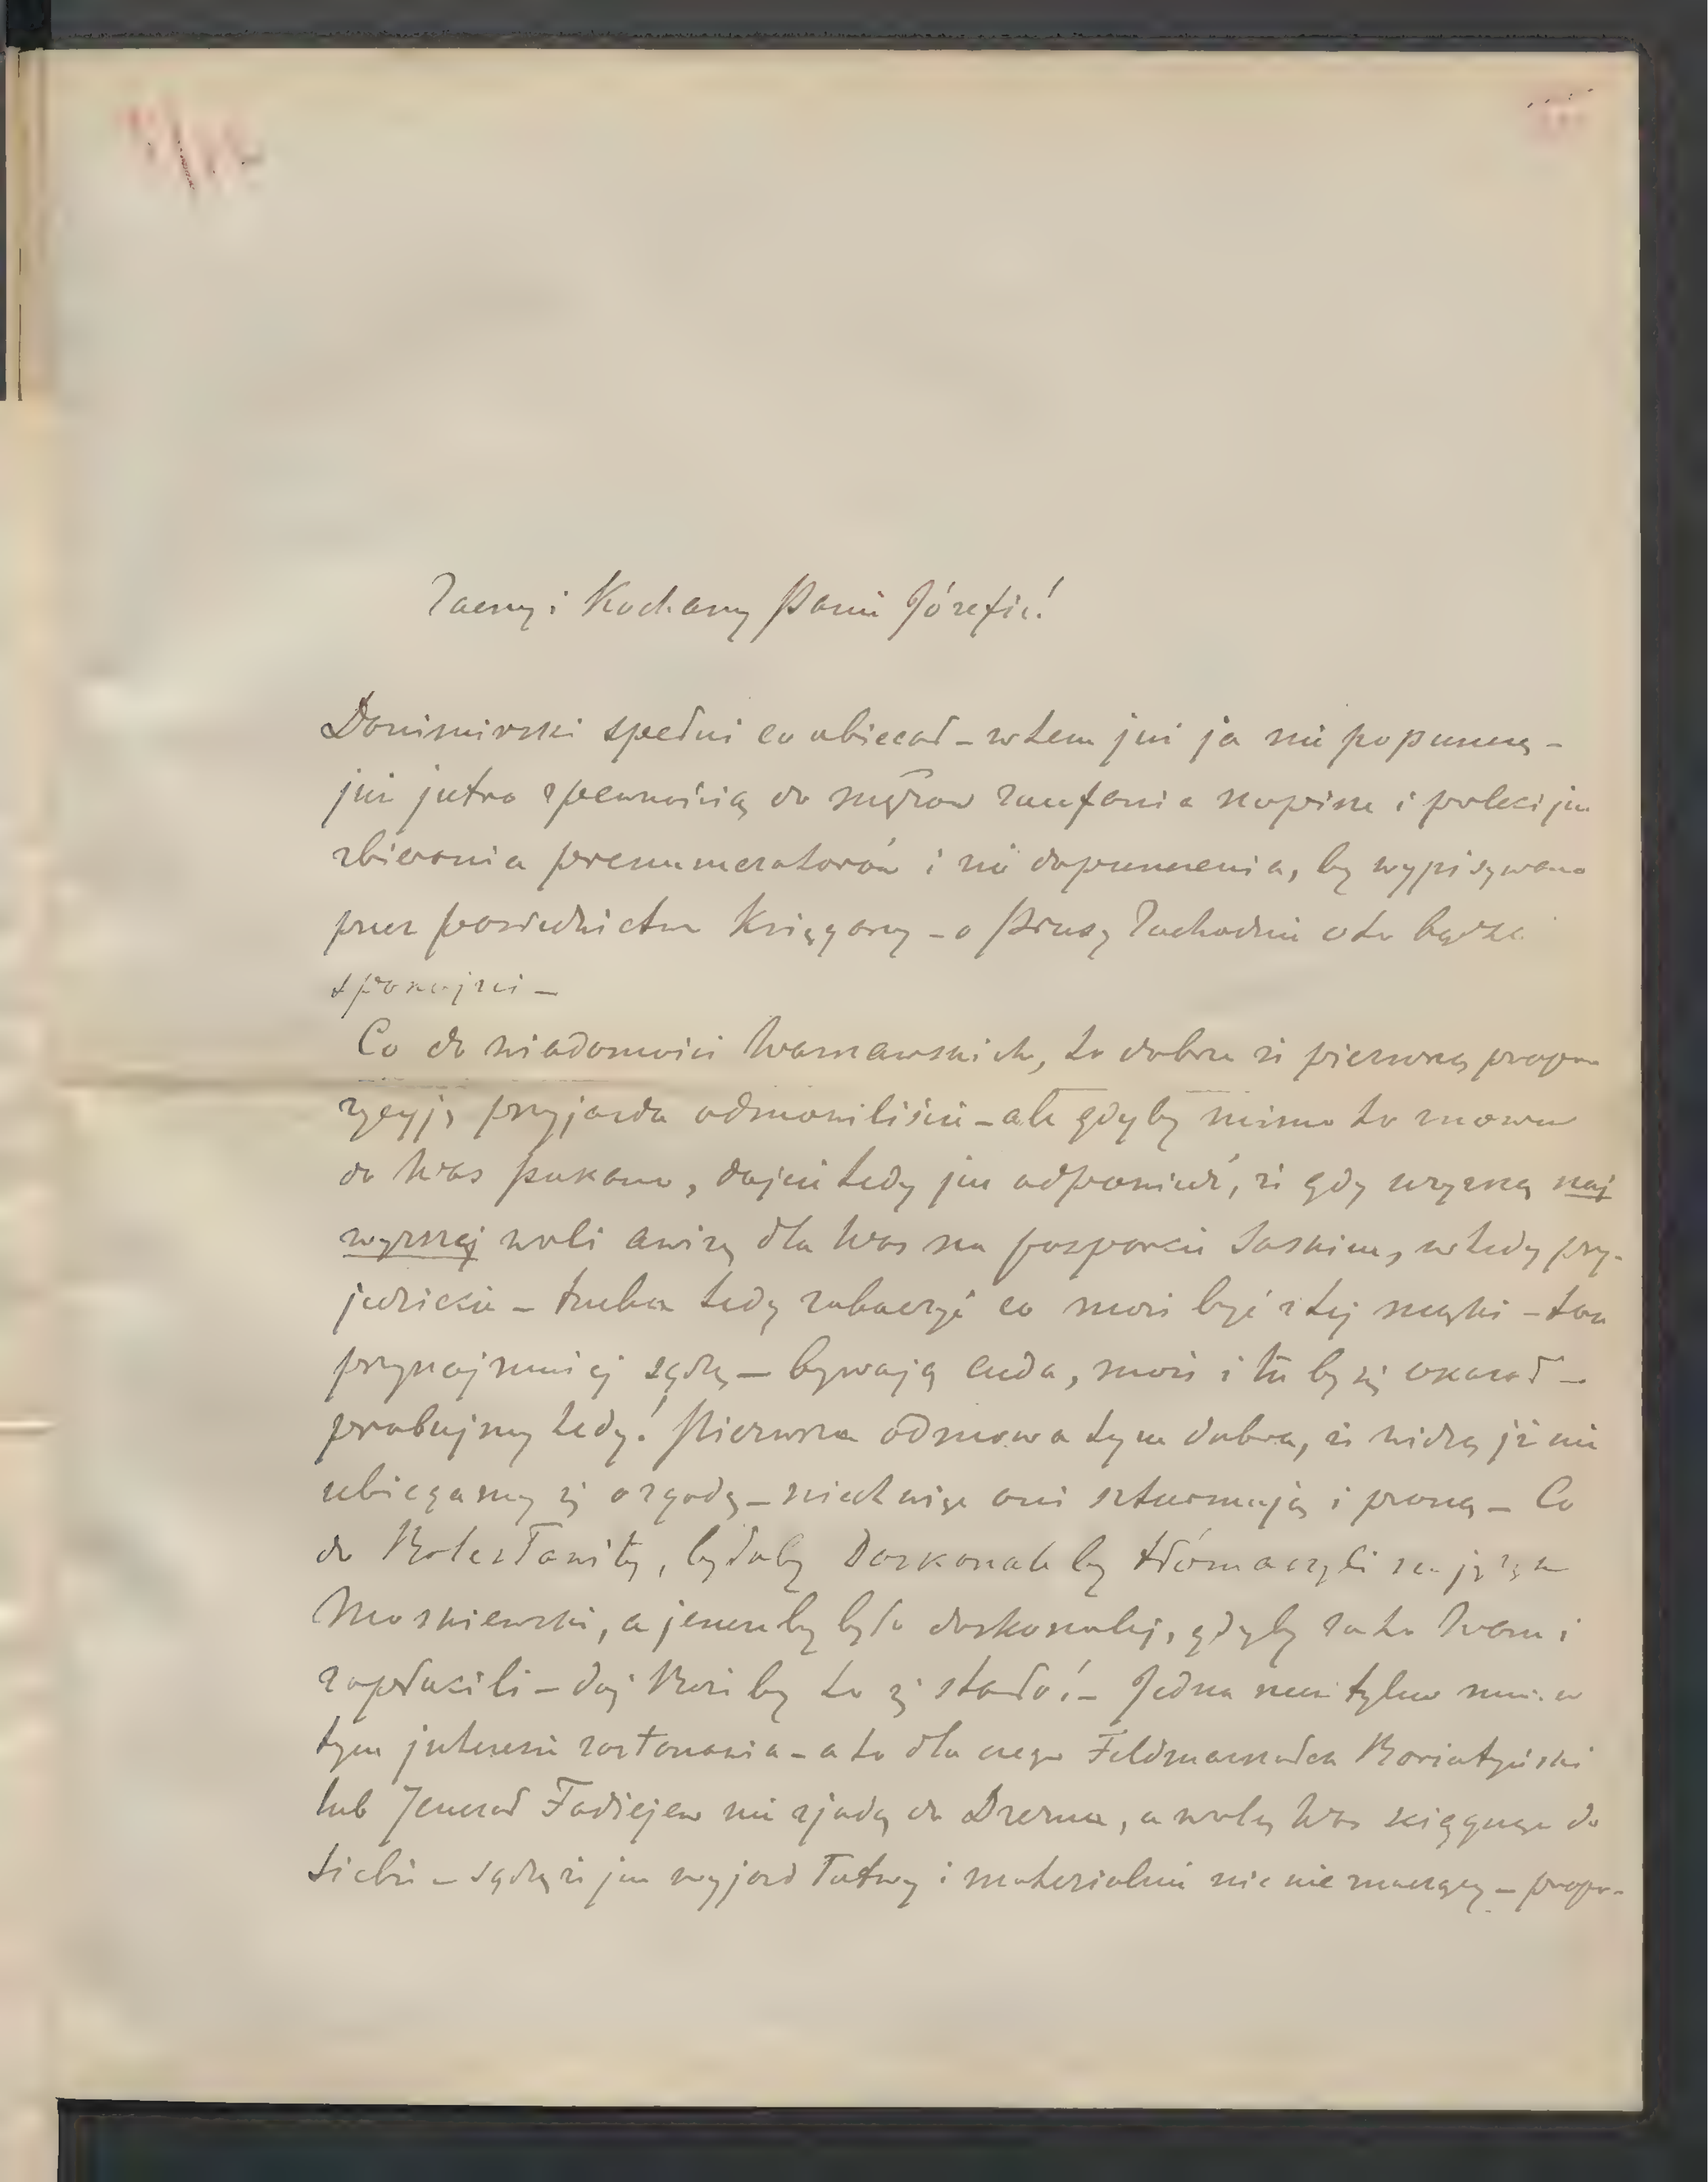 Zacny i Kochany Panie Józefie!
Donimirski spełni co obiecał – w tem już ja nie popuszczę –
już jutro z pewnością do mężów zaufania napiszę i polecę im
zbierania prenumeratorów i nie dopuszczenia, by wypisywano
przez pośrednictwo Księgarzy – o Prusy Zachodnie oto bądźcie
spokojni –
Co do wiadomości Warszawskich, to dobrze że pierwszą propo
zycyję przyjazdu odmówiliście – ale gdyby mimo to znowu
do Was pukano, dajcie tedy im odpowiedź, że gdy uzyszczą naj
wyższej woli awizę dla Was na paszporcie Saskim, wtedy przy-
jedziecie – trzeba tedy zobaczyć co może być z tej mąki – tak
przynajmniej sądzę – bywają cuda, może i tu by się okazał –
probujmy tedy! Pierwsza odmowa tym dobra, że widzą iż nie
ubiegamy się o zgodę – niech więc oni szturmują i proszą – Co
do Bolesławity, byłoby Doskonale by tłómaczyli na język
Moskiewski, a jeszcze by było doskonalej, gdyby za to Wam i
zapłacili – daj Boże by to się stało! – Jedna rzecz tylko mnie w
tym interesie zastanawia – a to dla czego Feldmarszałek Bariatyński
lub Jenerał Fadiejew nie zjadą do Drezna, a wolą Was ściągnąć do
siebie – sądzę że im wyjazd łatwy i materialnie nic nie znaczący – propo-